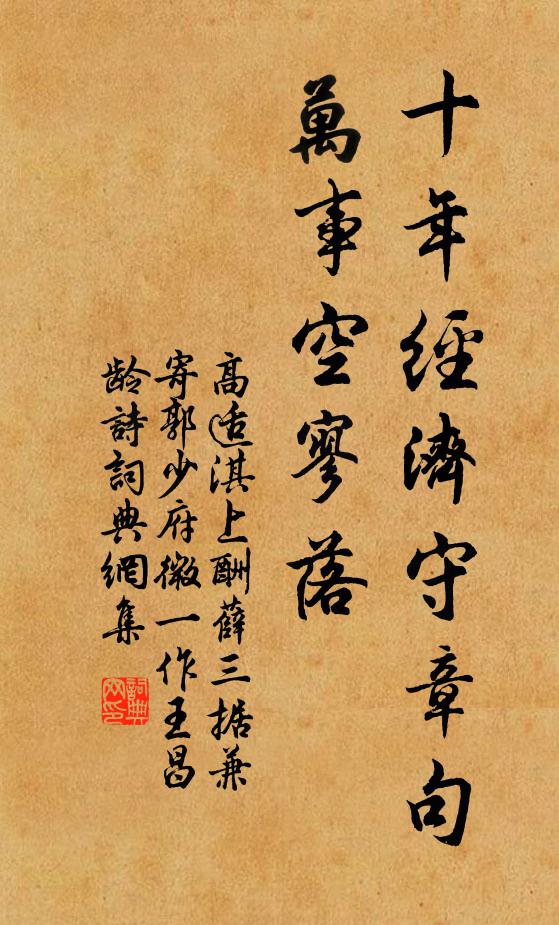 十年經濟守章句
萬事空寥落
高适淇上酬薛三据兼
寄郭少府微一作王昌
龄詩詞典網集
詞典
网印